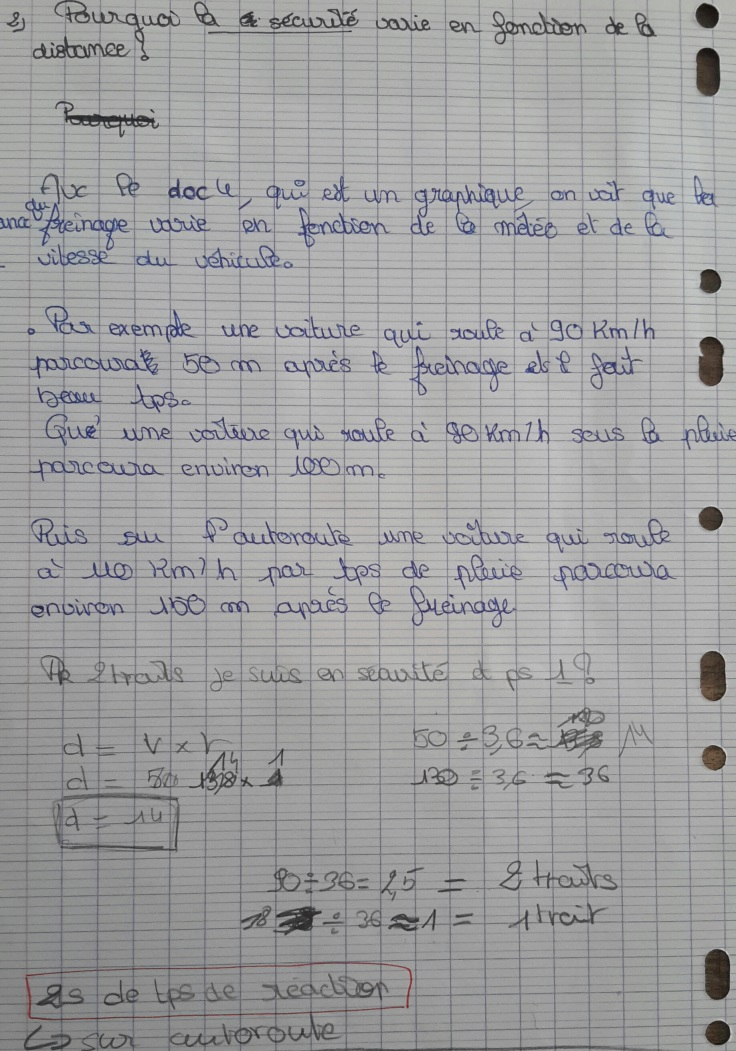 2) Pourquoi la sécurité varie en fonction de la
distance ?
Pourquoi
Avc le doc 4, qui est un graphique, on voit que
du freinage varie en fonction de la météo et de la
vitesse du véhicule.
. Par exemple une voiture qui roule à 90 Km/h
parcoura 50 m après le freinage fait
beau tps.
Que une voiture qui roule à 90 Km/h sous la pluie
parcoura environ 100 m.
Puis su l'autoroute une voiture qui roule
à 110 Km/h par tps de pluie parcoura
environ m après le freinage
2 traits je suis en sécurité ps 1 ?
d = V x
50 ÷ 3,6 ≈ 14
d = 14 x 1
130 ÷ 3,6 ≈ 36
d = 14
90 ÷ 36 = 2,5 = 2 traits
÷ 36 ≈ 1 = 1 trait
2s de tps de réaction
↳ sur autoroute